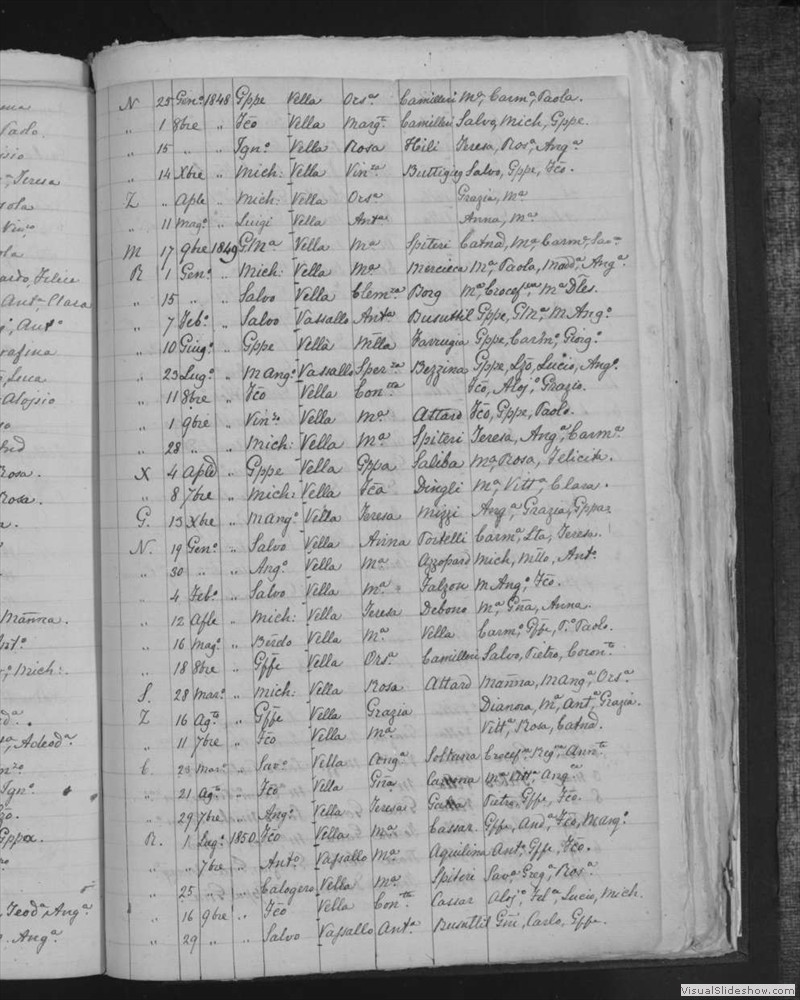 Paolo.
Teresa
Felice
Ant.ª Clara
Ant.º
Luca
Aloisio
Rosa.
Rosa.
Manna.
Mich:
Adeod.ª
Ign.º
Gppa.
Teod.ª Ang.ª
Ang.ª
N 25 Gen.º 1848 Gppe Vella Ors.ª Camilleri M.ª, Carm.ª, Paola.
" 1 8bre " Fco Vella Marg.ta Camilleri Salvo, Mich, Gppe.
" 15 " " Ign.º Vella Rosa Hili Teresa, Ros.ª, Ang.ª
" 14 Xbre " Mich: Vella Vin.za Buttigieg Salvo, Gppe, Fco.
Z " Aple " Mich: Vella Ors.ª Grazia, M.ª
" 11 Mag.º " Luigi Vella Ant.ª Anna, M.ª
M 17 9bre 1849 G.M.ª Vella M.ª Spiteri Catnd, M.ª Carm.ª
R 1 Gen.º " Mich: Vella M.ª Mercieca M.ª Paola, Ang.ª
" 15 " " Salvo Vella Clem.za Borg M.ª Crocef.sa, M.ª Dles.
" 7 Feb.º " Salvo Vassallo Ant.ª Busuttil Gppe, G.M.ª, M Ang.º
" 10 Giug.º " Gppe Vella Mlla Farrugia Gppe, Carm.º, Giorg.º
" 23 Lug.º " M Ang.º Vassallo Sper.za Bezzina Gppe, Lzo, Lucio, Ang.º
" 11 8bre " Fco Vella Con.tta Fco, Aloj.º Grazio.
" 1 9bre " Vin.zo Vella M.ª Attard Fco, Gppe, Paolo.
" 28 " " Mich: Vella M.ª Spiteri Teresa, Ang.ª, Carm.ª
X 4 Aple " Gppe Vella Gppa Saliba M.ª Rosa, Felicita.
" 8 7bre " Mich: Vella Fca Dingli M.ª, Vitt.ª, Clara.
G. 13 Xbre " M Ang.º Vella Teresa Mizzi Ang.ª Grazia, Gppa
N. 19 Gen.º " Salvo Vella Anna Portelli Carm.ª, Lta, Teresa.
" 30 " " Ang.º Vella M.ª Azzopard Mich, Mllo, Ant.º
" 4 Feb.º " Salvo Vella M.ª Falzon M Ang.º, Fco.
" 12 Aple " Mich: Vella Teresa Debono M.ª, Gna, Anna.
" 16 Mag.º " Berdo Vella M.ª Vella Carm.º, Gppe, P.º Paolo.
" 18 8bre " Gppe Vella Ors.ª Camilleri Salvo, Pietro, Coron.º
S. 28 Mar.º " Mich: Vella Rosa Attard Manna, M Ang.ª, Ors.ª
Z 16 Ag.to " Gppe Vella Grazia Dianora, M.ª, Ant.ª, Grazia.
" 11 7bre " Fco Vella M.ª Vitt.ª, Rosa, Catnd.
C. 23 Mar.º " Sav.º Vella Ang.ª Soltana Crocef.sa
" 21 Ag.to " Fco Vella Gna M.ª Ang.ª
" 29 7bre " Ang.º Vella Teresa Pietro, Gppe, Fco.
R. 1 Lug.º 1850 Fco Vella M.ª Cassar Gppe, And.ª, Fco, M Ang.º
" " 7bre " Ant.º Vassallo M.ª Aquilina Ant.º, Gppe, Fco.
" 25 " " Calogero Vella M.ª Spiteri Sav.ª Greg.ª, Ros.ª
" 16 9bre " Fco Vella Con.tta Cassar Aloj.º, Lucio, Mich.
" 29 " " Salvo Vassallo Ant.ª Busuttil Gni, Carlo, Gppe.
VisualSlideshow.com